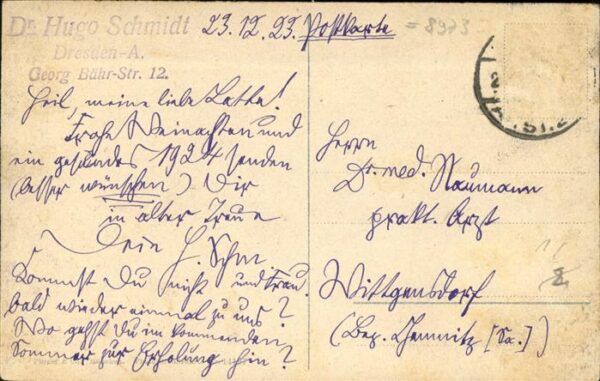 Dr. Hugo Schmidt
Dresden-A.
Georg Bähr-Str. 12.
23.12.23. Postkarte = 8973
Heil, meine liebe Latte!
Frohe Weinachten und
ein gesundes 1924 senden
(besser wünschen) Dir
in alter Treue
Dein H. Schm.
und Frau.
Kommst Du nicht
bald wieder einmal zu uns?
Wo gehst Du im kommenden
Sommer zur Erholung hin?
Herrn
Dr. med. Naumann
prakt. Arzt
Wittgensdorf
(Bez. Chemnitz [Sa.])